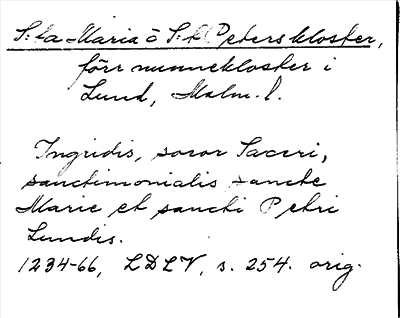 S:ta Maria o S:t Peters kloster,
förr nunnekloster i
Lund, Malm. l.
Ingridis, soror Saceri,
sanctimonialis sancte
Marie et sancti Petri
Lundis.
1234-66, LDLV, s. 254. orig.